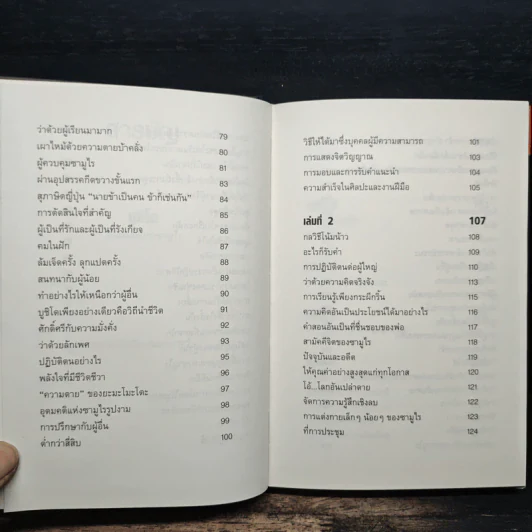 ว่าด้วยผู้เรียนมามาก 79
เผาไหม้ด้วยความตายบ้าคลั่ง 80
ผู้ควบคุมซามูไร 81
ผ่านอุปสรรคกีดขวางชั้นแรก 83
สุภาษิตญี่ปุ่น "นายข้าเป็นคน ข้าก็เช่นกัน" 84
การตัดสินใจที่สำคัญ 85
ผู้เป็นที่รักและผู้เป็นที่รังเกียจ 86
คมในฝัก 87
ล้มเจ็ดครั้ง ลุกแปดครั้ง 88
สนทนากับผู้น้อย 89
ทำอย่างไรให้เหนือกว่าผู้อื่น 90
บูชิโดเพียงอย่างเดียวคือวิถีนำชีวิต 91
ศักดิ์ศรีกับความมั่งคั่ง 92
ว่าด้วยลักเพศ 93
ปฏิบัติตนอย่างไร 95
พลังใจที่มีชีวิตชีวา 96
"ความตาย" ของยะมะโมะโตะ 97
อุดมคติแห่งซามูไรรูปงาม 98
การปรึกษากับผู้อื่น 99
ต่ำกว่าสี่สิบ 100
วิธีให้ได้มาซึ่งบุคคลผู้มีความสามารถ 101
การแสดงจิตวิญญาณ 103
การมอบและการรับคำแนะนำ 104
ความสำเร็จในศิลปะและงานฝีมือ 105
เล่มที่ 2 107
กลวิธีโน้มน้าว 108
อะไรก็รับคำ 109
การปฏิบัติตนต่อผู้ใหญ่ 110
ว่าด้วยความคิดจริงจัง 111
การเรียนรู้เพียงกระผีกริ้น 115
ความคิดอันเป็นประโยชน์ได้มาอย่างไร 116
คำสอนอันเป็นที่ชื่นชอบของพ่อ 117
สามัคคีจิตของซามูไร 118
ปัจจุบันและอดีต 119
ให้คุณค่าอย่างสูงสุดแก่ทุกโอกาส 120
โอ้...โลกอันเปล่าดาย 121
จัดการความรู้สึกเชิงลบ 122
การแต่งกายเล็กๆ น้อยๆ ของซามูไร 123
ที่การประชุม 124